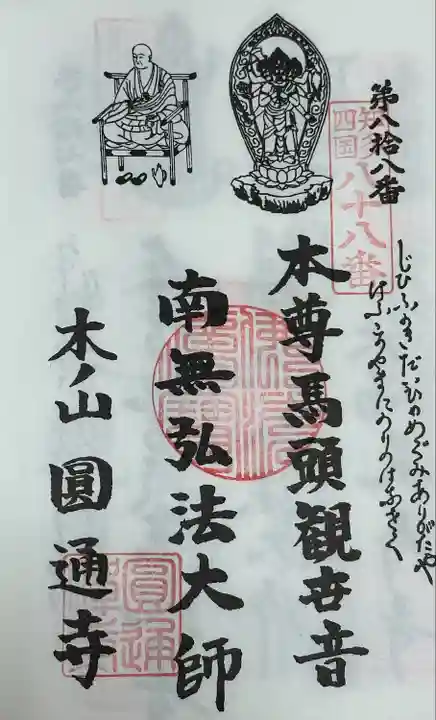 第八拾八番
知多
四国
八十八番
じひふかきだいひのめぐみありがたや
けふこのやまにのりのはなさく
本尊馬頭観世音
南無弘法大師
木ノ山 圓通寺
圓通